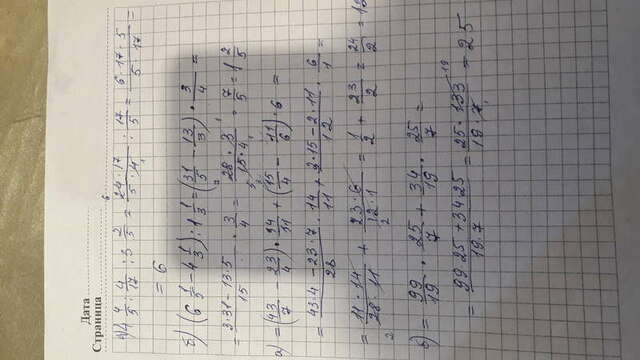 Дата
Страница
а) 4 4/5 : 4/17 : 3 2/5 = 24·17/5·4 : 17/5 = 6·17·5/5·17 =
= 6
б) (6 1/5 − 4 1/3) : 1 1/3 = (31/5 − 13/3) · 3/4 =
= 3·31−13·5/15 · 3/4 = 28·3/15·4 = 7/5 = 1 2/5
а) = (43/7 − 23/4) · 14/11 + (15/4 − 11/6) · 6 =
= 43·4−23·7/28 · 14/11 + 3·15−2·11/12 · 6/1 =
= 11·14/28·11 + 23·6/12·1 = 1/2 + 23/2 = 24/2 = 12
= 99/19 · 25/7 + 34/19 · 25/7 =
= 99 25+34 25/19·7 = 25·133/19·7 = 25